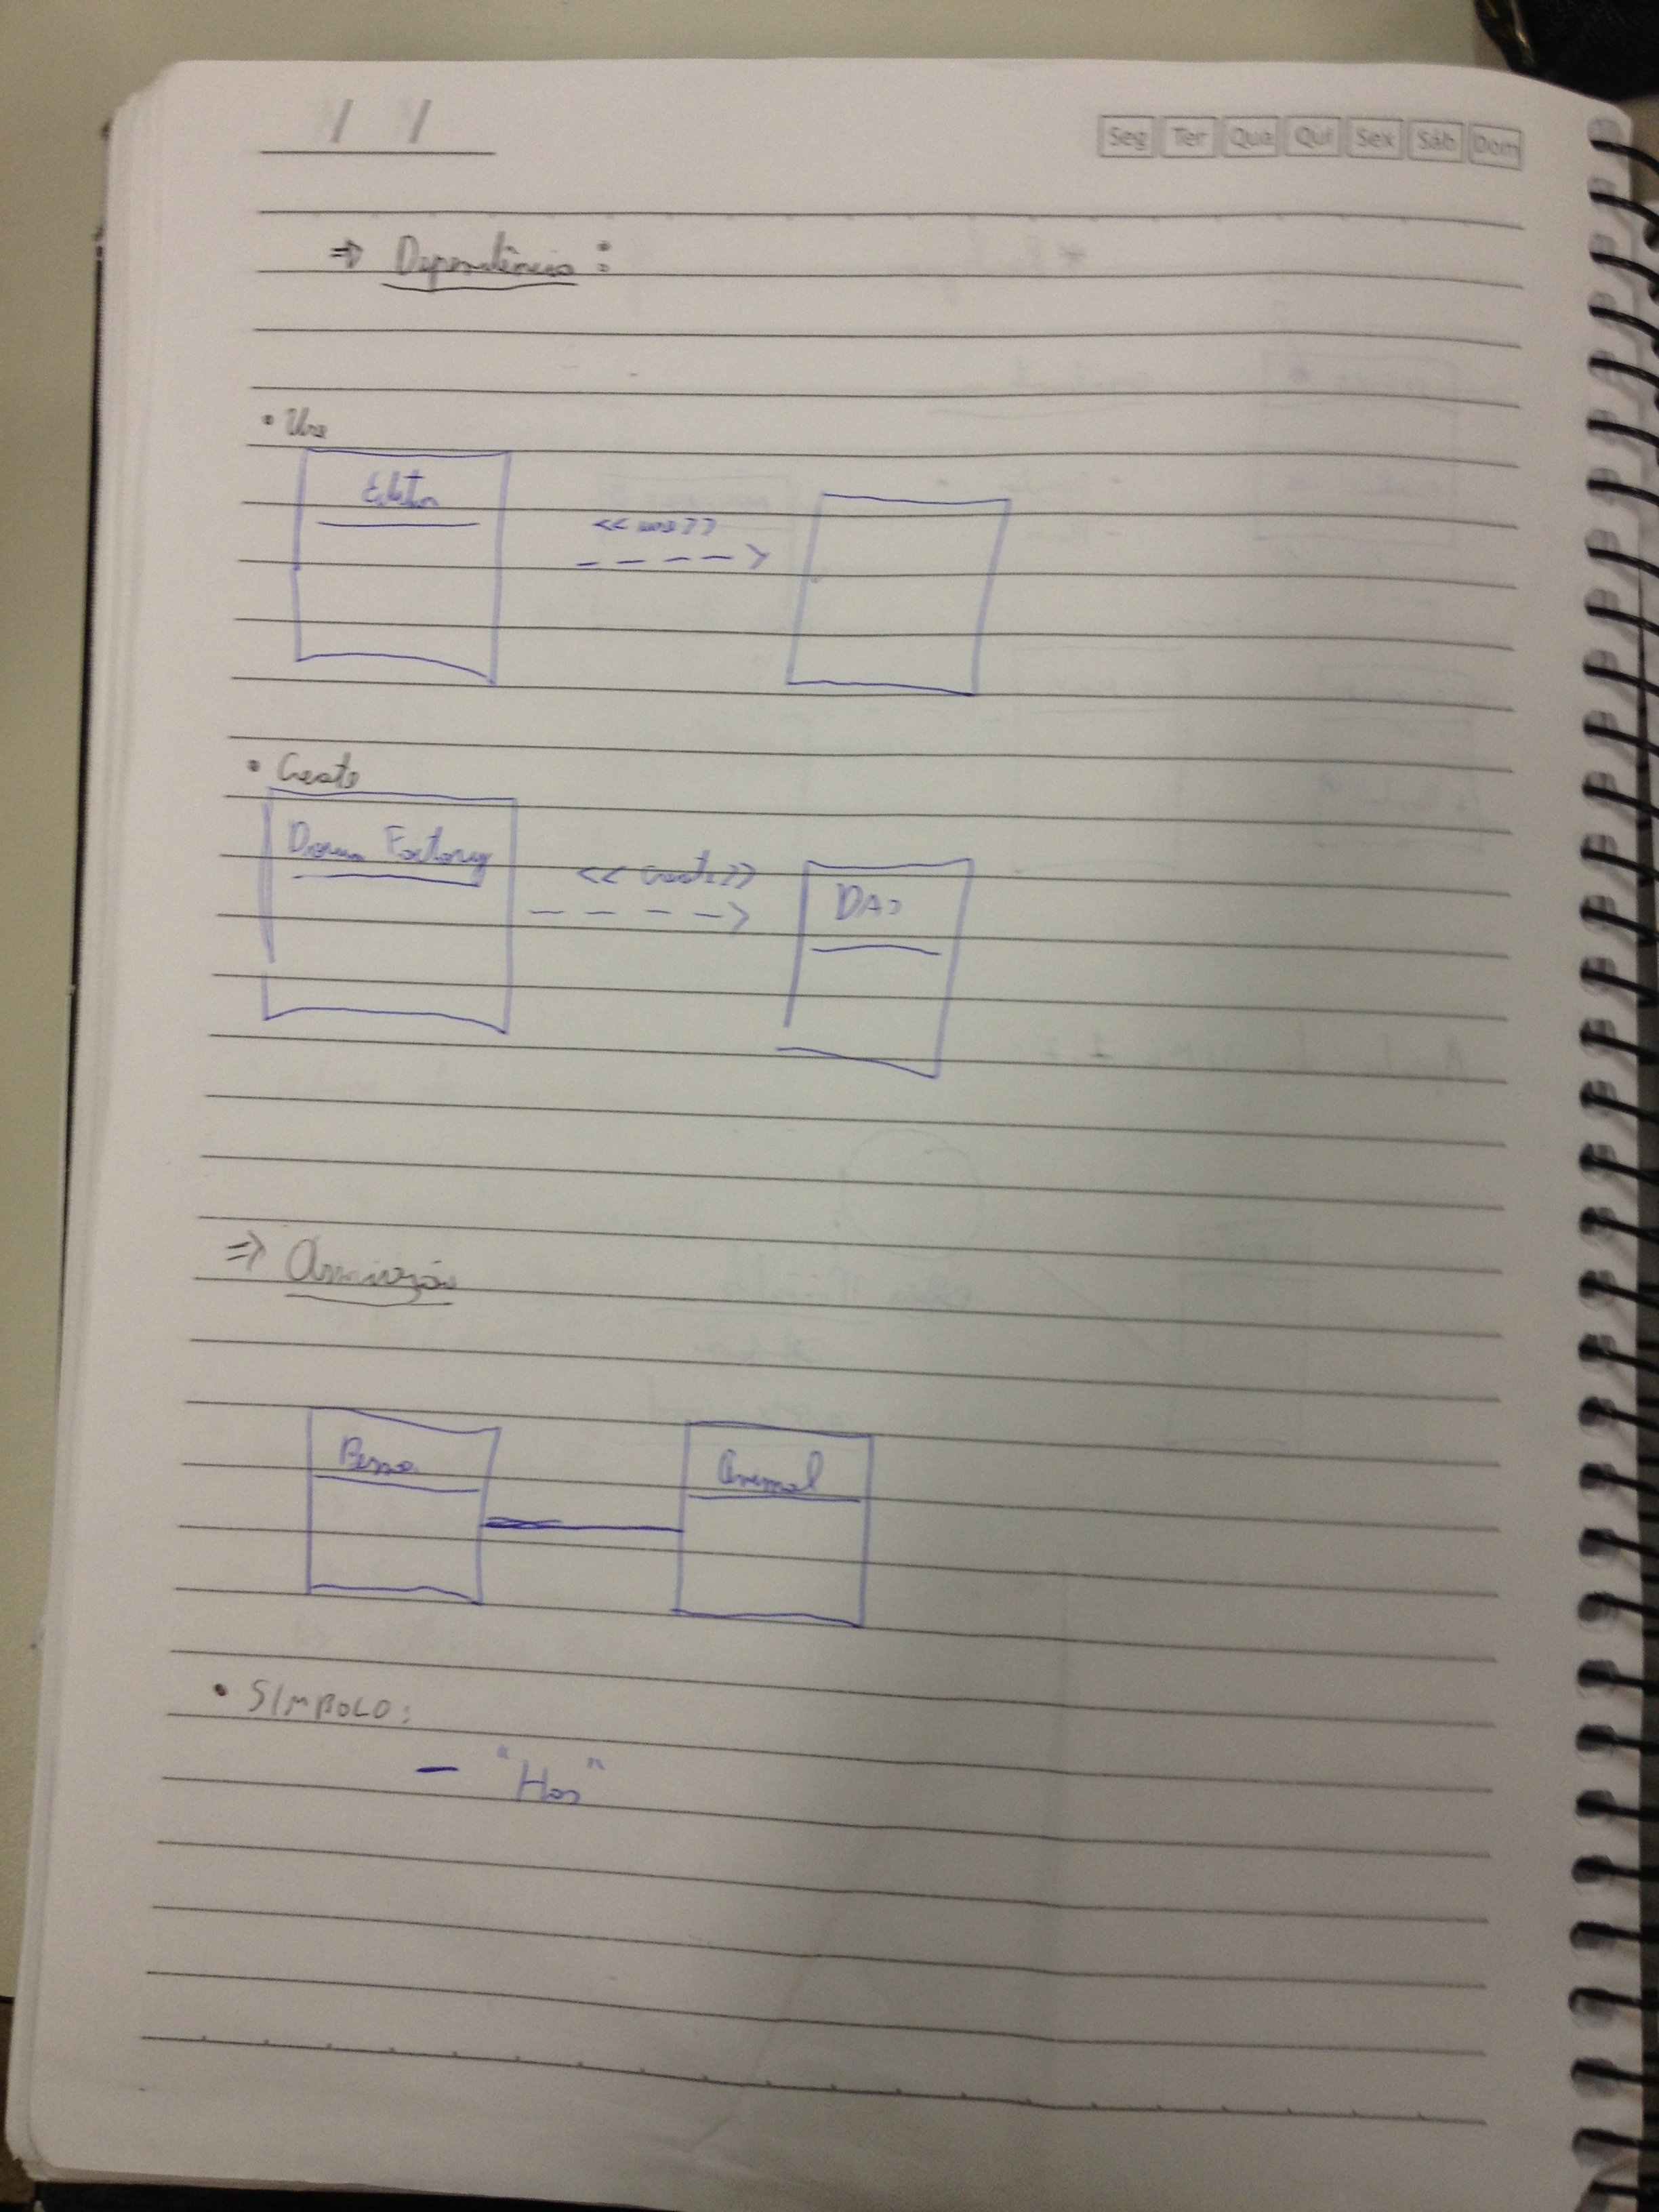 / /
Seg Ter Qua Qui Sex Sáb Dom
⇒ Dependência :
• Use
<< use >>
• Create
Factory
<< create >>
DAO
⇒ Associação
Pessoa
Animal
• SIMBOLO:
— "Has"